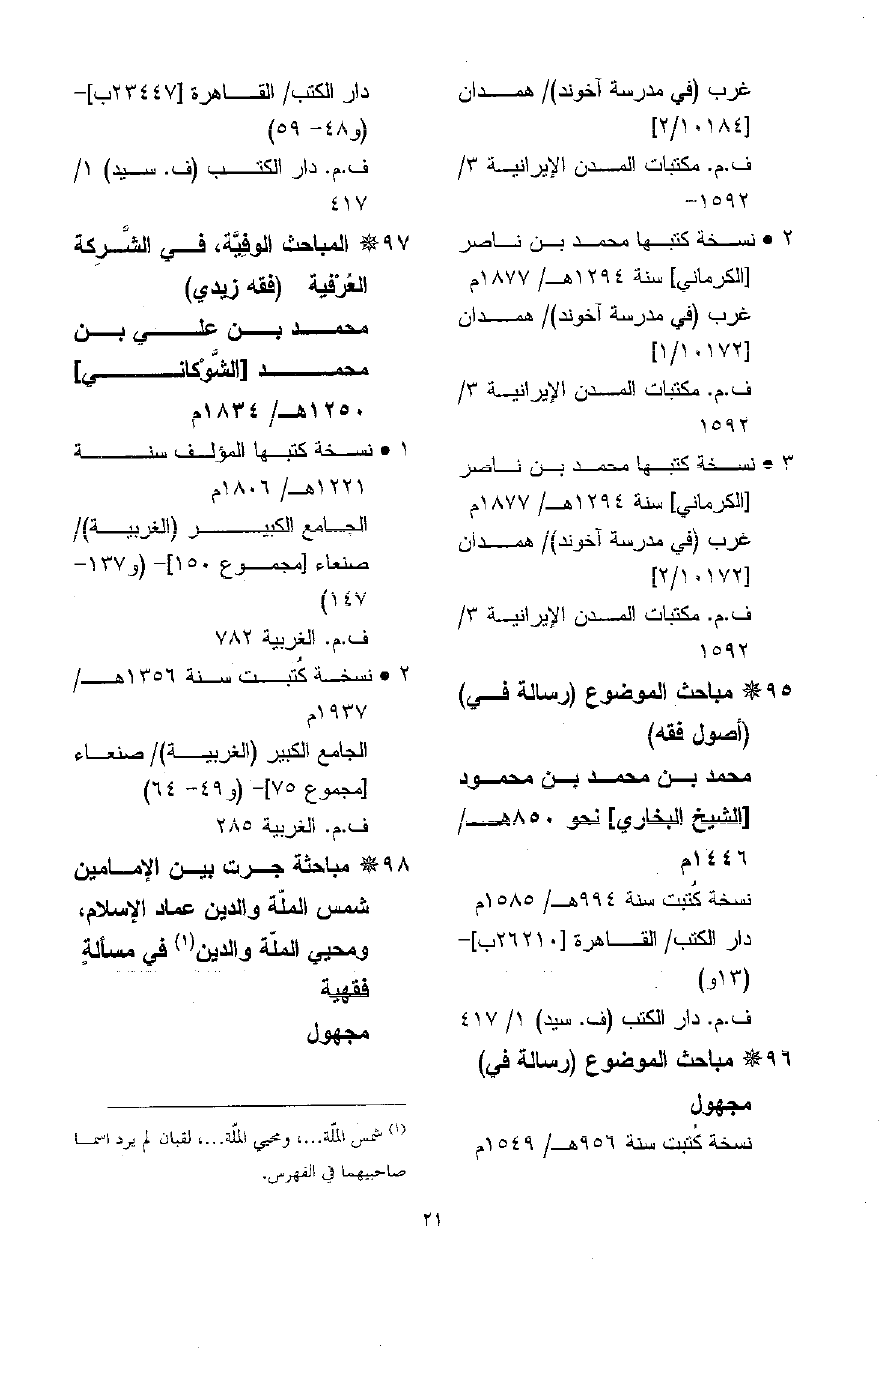 غرب (في مدرسة آخوند)/ همدان
[٢/١٠١٨٤]
ف.م. مكتبات المدن الإيرانية ٣/
١٥٩٢-
٢ • نسخة كتبها محمد بن ناصر
[الكرماني] سنة ١٢٩٤هـ/ ١٨٧٧م
غرب (في مدرسة آخوند)/ همدان
[١/١٠١٧٢]
ف.م. مكتبات المدن الإيرانية ٣/
١٥٩٢
٣ • نسخة كتبها محمد بن ناصر
[الكرماني] سنة ١٢٩٤هـ/ ١٨٧٧م
غرب (في مدرسة آخوند)/ همدان
[٢/١٠١٧٢]
ف.م. مكتبات المدن الإيرانية ٣/
١٥٩٢
٩٥ ❊ مباحث الموضوع (رسالة في)
(أصول فقه)
محمد بن محمد بن محمود
[الشيخ البخاري] نحو ٨٥٠هـ/
١٤٤٦م
نسخة كُتبت سنة ٩٩٤هـ/ ١٥٨٥م
دار الكتب/ القاهرة [٢٦٢١٠ب]-
(١٣و)
ف.م. دار الكتب (ف. سيد) ١/ ٤١٧
٩٦ ❊ مباحث الموضوع (رسالة في)
مجهول
نسخة كُتبت سنة ٩٥٦هـ/ ١٥٤٩م
دار الكتب/ القاهرة [٢٣٤٤٧ب]-
(و٤٨- ٥٩)
ف.م. دار الكتب (ف. سيد) ١/
٤١٧
٩٧ ❊ المباحث الوفِيَّة، في الشَّرِكة
العُرْفية (فقه زيدي)
محمد بن علي بن
محمد [الشَّوْكاني]
١٢٥٠هـ/ ١٨٣٤م
١ • نسخة كتبها المؤلف سنة
١٢٢١هـ/ ١٨٠٦م
الجامع الكبير (الغربية)/
صنعاء [مجموع ١٥٠]- (و١٣٧-
١٤٧)
ف.م. الغربية ٧٨٢
٢ • نسخة كُتبت سنة ١٣٥٦هـ/
١٩٣٧م
الجامع الكبير (الغربية)/ صنعاء
[مجموع ٧٥]- (و٤٩- ٦٤)
ف.م. الغربية ٢٨٥
٩٨ ❊ مباحثة جرت بين الإمامين
شمس الملّة والدين عماد الإسلام،
ومحيي الملّة والدين(١) في مسألةٍ
فقهية
مجهول
(١) شمس الملّة...، ومحيي الملّة...، لقبان لم يرد اسما
صاحبيهما في الفهرس.
٢١